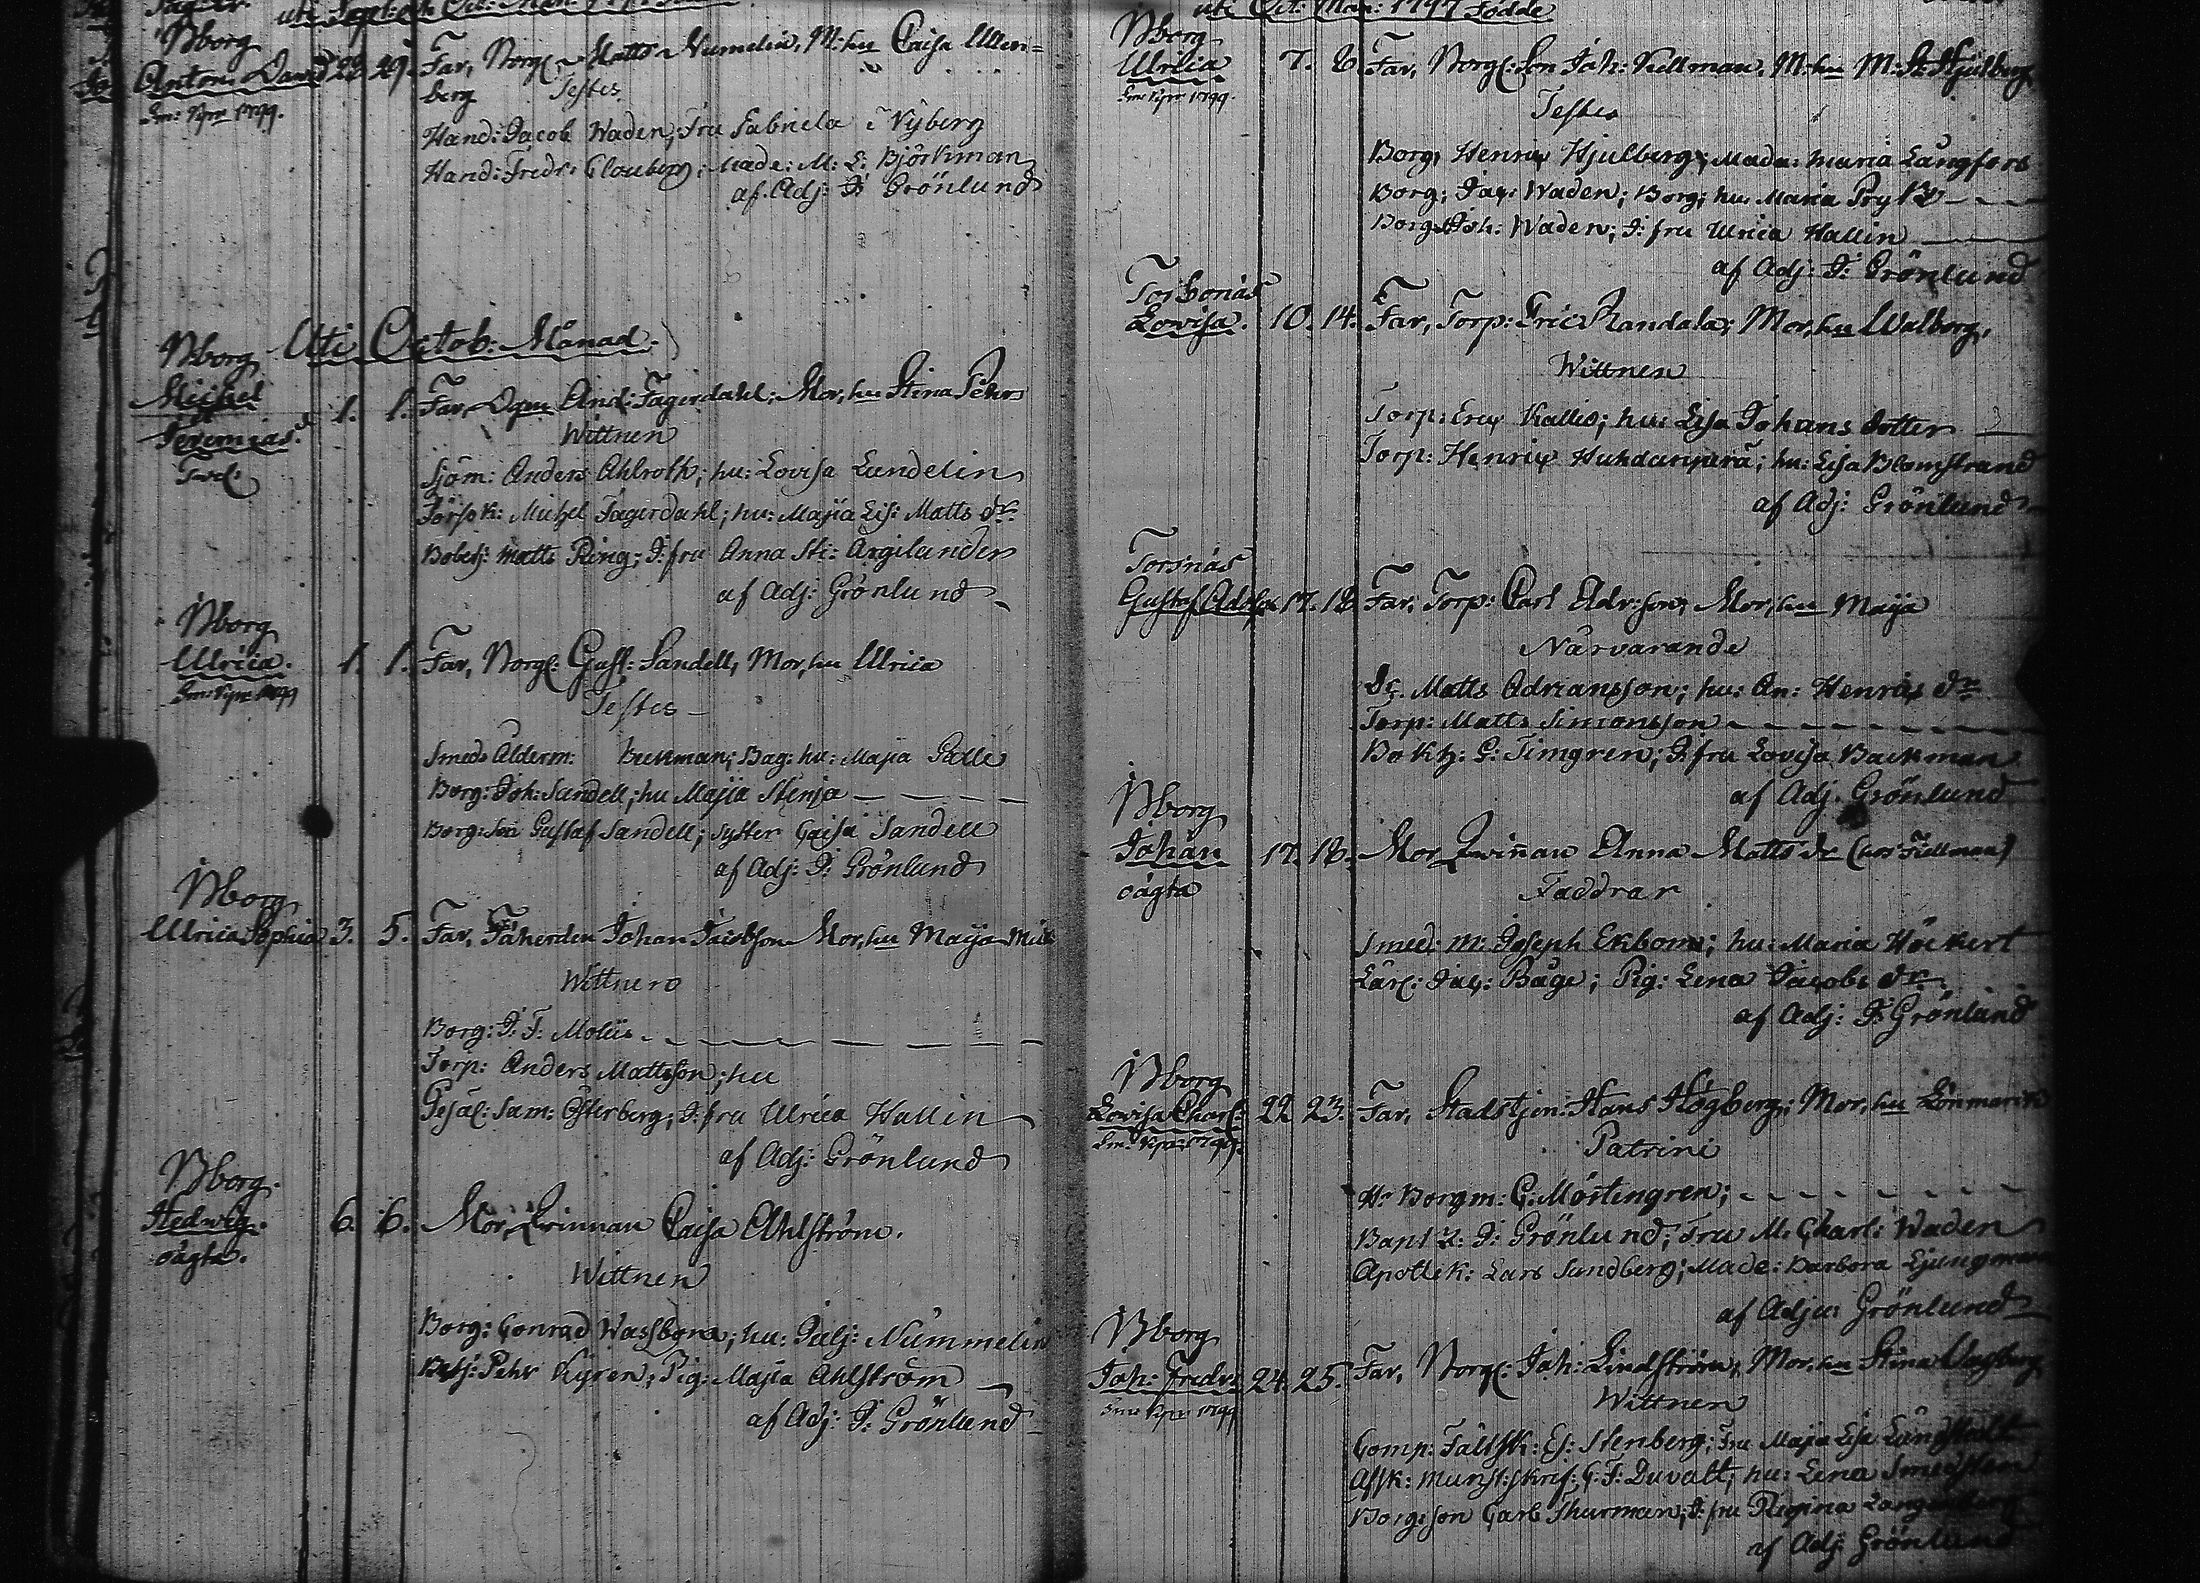 Bborg
Anton David 28 29. Far, Borg: Matts Numelin, M: hu Caisa Ulln=
berg Testes
Hand: Jacob Waden; Fru Gabriela Nyberg
Hand: Fredr: Clouberg; Made: M: L: Björkman
af Adj: J: Grönlund
Uti Octob: Månad.
Bborg
Michel
Jeremias
1. 1. Far, And: Fagerdahl; Mor, hu Stina Pehrs
Wittnen
Sjöm: Anders Ahlroth; hu: Lovisa Lundelin
Försök: Michel Fagerdahl; hu: Majia Lis: Matts dr
Bobesj: Matts Ring; J:fru Anna Sti: Argilander
af Adj: Grönlund
Bborg
Ulrica. 1. 1. Far, Borg: Gust: Sandell, Mor, hu Ulrica
Testes
Smeds Ålderm: Beckman; Bag: hu: Majia Palle
Borg: Joh: Sandell; hu Majia Stenja
Borg: Son Gustaf Sandell; syster Caisa Sandell
af Adj: J: Grönlund
Bborg
Ulrica Sophia 3. 5. Far, Fäherden Johan Jacobson Mor, hu Maija
Wittnen
Borg: J: F: Moliis
Torp: Anders Mattsson; hu
Gesäl: Sam: Österberg; J:fru Ulrica Hallin
af Adj: Grönlund
Bborg.
Hedwig. 6. 6. Mor, Qvinnan Caisa Ahlström.
oägta.
Wittnen
Borg: Conrad Wassbom; hu: Nummelin
Pehr Kyren; Pig: Majia Ahlström
af Adj: J: Grönlund
uti Oct: Mån: 1797 Födde
Bborg
Ulrica 7. 8 Far, Borg: Son Joh: Kellman, M: hu M: St: Hjulberg
Testes
Borg: Henric Hjulberg; Mada: Maria Långfors
Borg: Jac: Waden; Borg: hu: Maria Prytz
Borg: Joh: Waden; J: fru Ulrica Hallin
af Adj: J: Grönlund
Torsnäs
Lovisa. 10. 14. Far, Torp: Eric Randala; Mor, hu Walborg,
Wittnen
Torp: Eric Kallio; hu: Lisa Johans dotter
Torp: Henric Huhdanperä; hu: Lisa Blomstrand
af Adj: Grönlund
Torsnäs
Gustaf Adolph 17. 18. Far; Torp: Carl Adr:son, Mor, hu Maija
Närvarande
Matts Adriansson; hu: An: Henrics dr
Torp: Matts Simonsson
Bokh: G: Timgren; J:fru Lovisa Backman
af Adj. Grönlund
Bborg
Johan 17. 18. Mor, Qvinnan Anna Matts dr (hos Fiellman)
oägta
Faddrar
Smed: M: Joseph Ekbom; hu: Maria Höckert
Lärl: Jac: Båge; Pig: Lena Jacobs dr
af Adj: J: Grönlund
Bborg
Lovisa Charl: 22 23. Far, Stadstjen: Hans Högberg; Mor, hu Lönmarck
Patrini
Hr Borgm: C: Mårtengren;
J: Grönlund; Fru M. Charl: Waden
Apottek: Lars Sundberg; Made: Barbora Ljungman
af Adju: Grönlund
Bborg
Joh: Fredr: 24. 25. Far, Borg: Joh: Lindström, Mor, hu Stina
Wittnen
Comp: Fältsk: Es: Stenberg; Fru Maja Lisa
Munst:skrif: C. F: Duvalt; hu: Lena
Borg:son Carl Thurman; J:fru Regina
af Adj: Grönlund